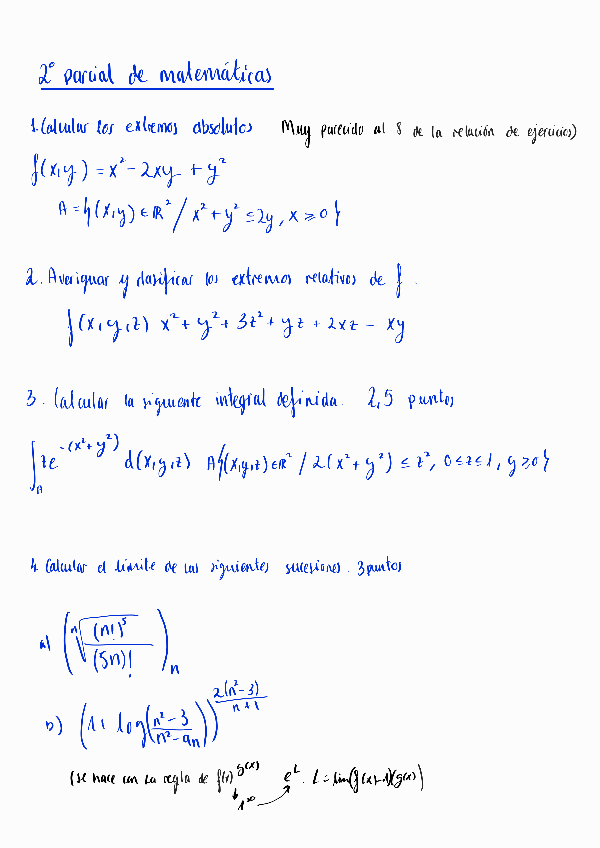 2º parcial de matemáticas
1. Calcular los extremos absolutos Muy parecido al 8 de la relación de ejercicios)
f(x,y) = x² - 2xy + y²
A = {(x,y) ∈ ℝ² / x² + y² ≤ 2y, x ≥ 0}
2. Averiguar y clasificar los extremos relativos de f.
f(x,y,z) x² + y² + 3z² + yz + 2xz - xy
3. Calcular la siguiente integral definida. 2,5 puntos
∫_A ze^{-(x²+y²)} d(x,y,z) A{(x,y,z) ∈ ℝ² / 2(x² + y²) ≤ z², 0 ≤ z ≤ 1, y ≥ 0}
4. Calcular el límite de las siguientes sucesiones. 3 puntos
a) (ⁿ√((n!)⁵/(5n)!))_n
b) (1 + log((n² - 3)/(n² - 9n)))^{2(n² - 3)/(n + 1)}
(se hace con la regla de f(x)^{g(x)} e^L. L = lim(f(x)-1)(g(x))
1^∞